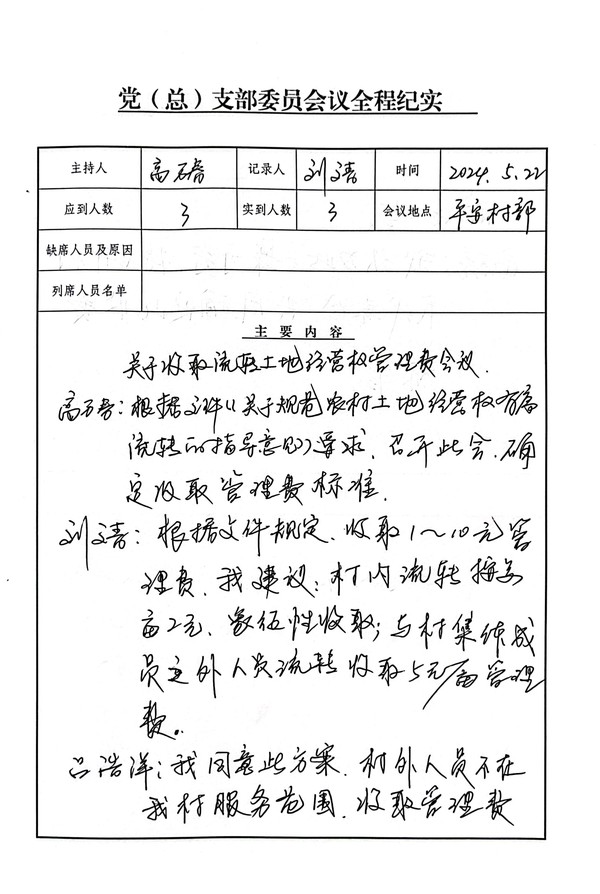 党（总）支部委员会议全程纪实
主持人 高石春 记录人 刘文清 时间 2024.5.22
应到人数 3 实到人数 3 会议地点 平安村部
缺席人员及原因
列席人员名单
主要内容
关于收取流转土地经营权管理费会议.
高石春：根据文件《关于规范农村土地经营权有序
流转的指导意见》要求.召开此会.确
定收取管理费标准.
刘文清：根据文件规定.收取1～10元管
理费.我建议：村内流转按每
亩2元.象征性收取；与村集体成
员之外人员流转收取5元/亩管理
费。
吕浩洋：我同意此方案.村外人员不在
我村服务范围.收取管理费